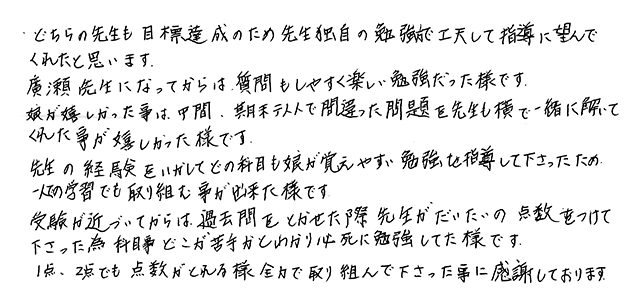 ・どちらの先生も目標達成のため先生独自の勉強で工夫して指導に望んで
くれたと思います。
廣瀬先生になってからは、質問もしやすく楽しい勉強だった様です。
娘が嬉しかった事は、中間、期末テストで間違った問題を先生も横で一緒に解いて
くれた事が嬉しかった様です。
先生の経験をいかしてどの科目も娘が覚えやすい勉強を指導して下さったため
一人での学習でも取り組む事が出来た様です。
受験が近づいてからは、過去問をとかせた際先生がだいたいの点数をつけて
下さった為科目事どこが苦手かとわかり必死に勉強してた様です。
1点、2点でも点数がとれる様全力で取り組んで下さった事に感謝しております。